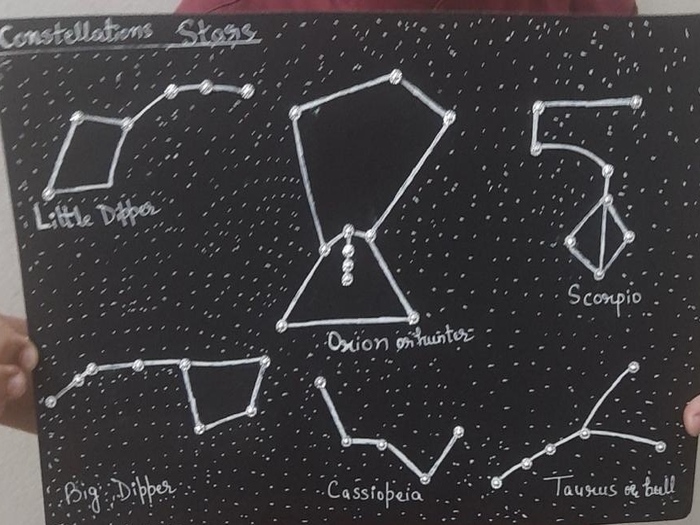 Constellations Stars
Little Dipper
Scorpio
Orion or hunter
Big Dipper
Cassiopeia
Taurus or bull